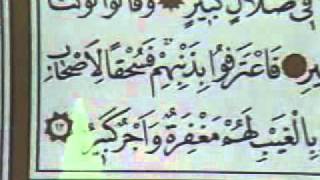 فِى ضَلَالٍ كَبِيرٍ وَقَالُوا لَوْ كُنَّا
فَاعْتَرَفُوا بِذَنْبِهِمْ فَسُحْقًا لِأَصْحَابِ
بِالْغَيْبِ لَهُمْ مَغْفِرَةٌ وَأَجْرٌ كَبِيرٌ ١٢